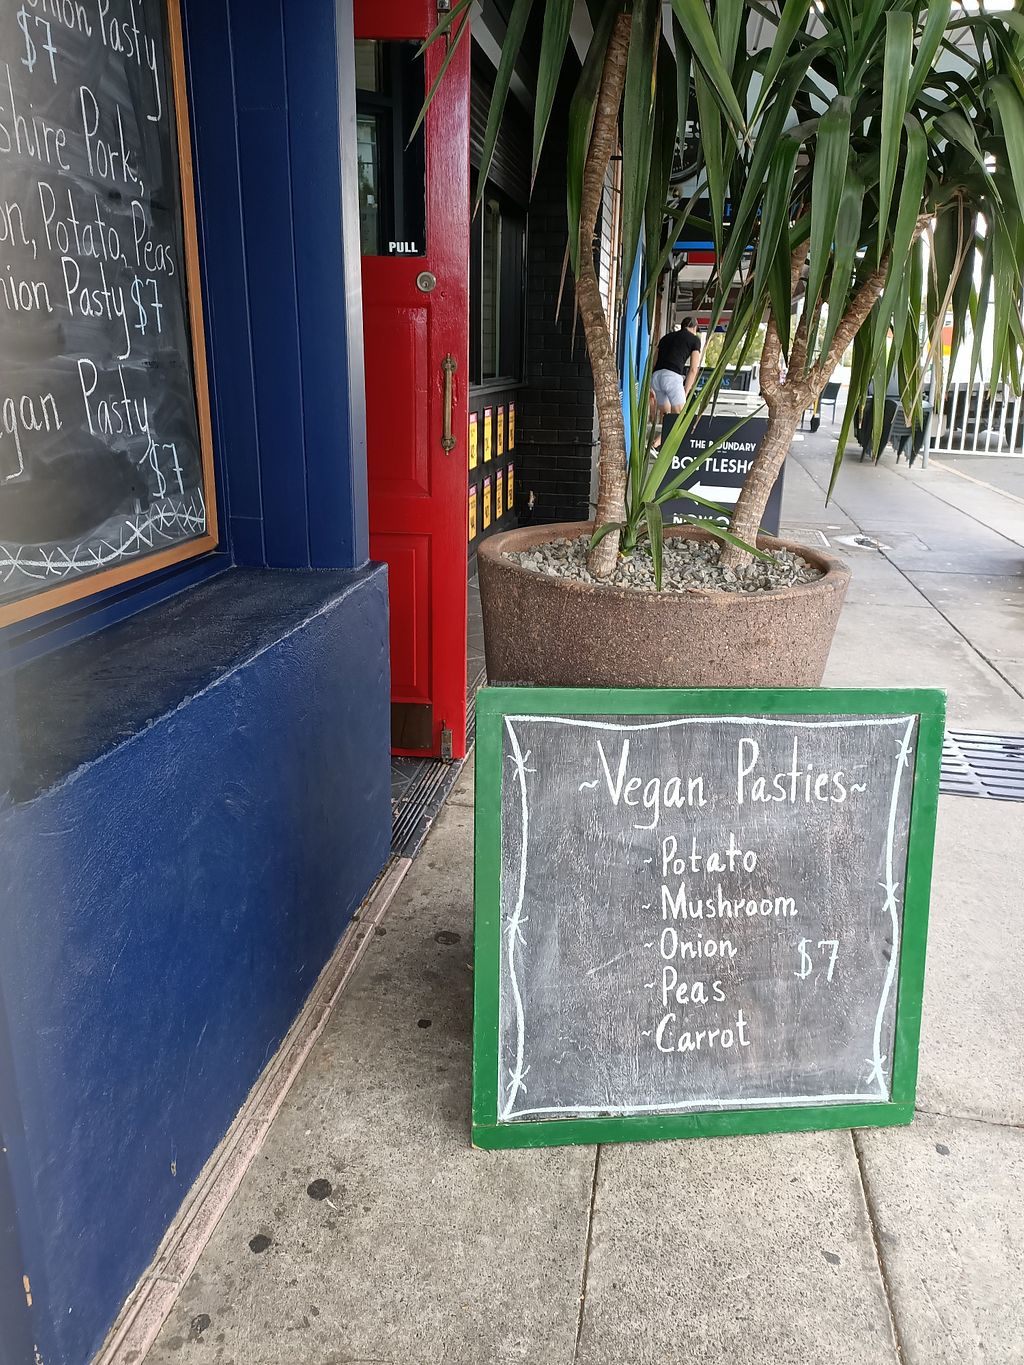 Onion Pasty
$7
shire Pork,
on, Potato, Peas
nion Pasty $7
egan Pasty
$7
PULL
THE BOUNDARY
BOTTLESHO
HappyCow
~Vegan Pasties~
-Potato
-Mushroom
-Onion
$7
-Peas
-Carrot